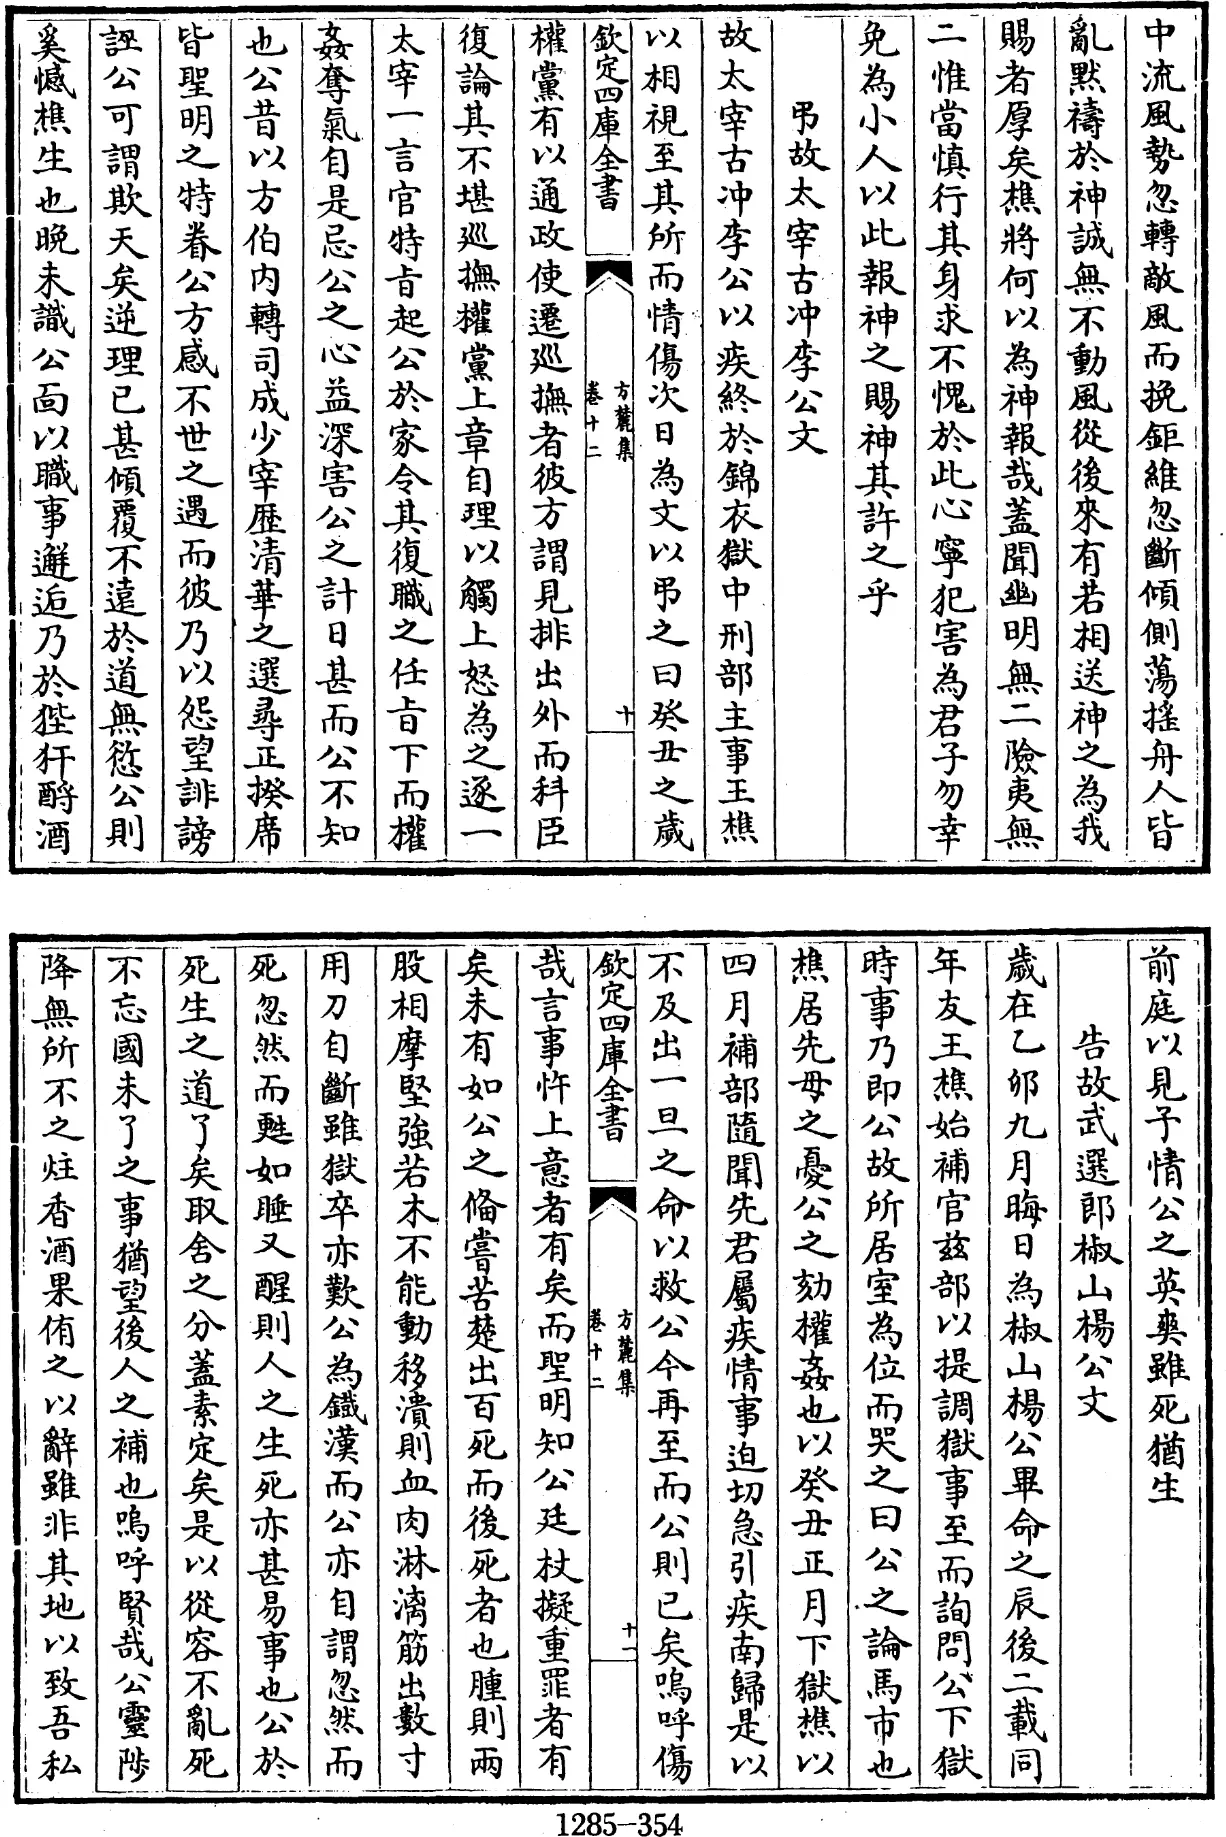 中流風勢忽轉敵風而挽鉅維忽斷傾側蕩搖舟人皆
亂默禱於神誠無不動風從後來有若相送神之為我
賜者厚矣樵將何以為神報哉蓋聞幽明無二險夷無
二惟當慎行其身求不愧於此心寧犯害為君子勿幸
免為小人以此報神之賜神其許之乎
弔故太宰古冲李公文
故太宰古冲李公以疾終於錦衣獄中刑部主事王樵
以相視至其所而情傷次日為文以弔之曰癸丑之歲
欽定四庫全書
方麓集
卷十二
十
權黨有以通政使遷巡撫者彼方謂見排出外而科臣
復論其不堪巡撫權黨上章自理以觸上怒為之逐一
太宰一言官特旨起公於家令其復職之任旨下而權
姦奪氣自是忌公之心益深害公之計日甚而公不知
也公昔以方伯內轉司成少宰歷清華之選尋正揆席
皆聖明之特眷公方感不世之遇而彼乃以怨望誹謗
誣公可謂欺天矣逆理已甚傾覆不遠於道無愆公則
奚憾樵生也晚未識公面以職事邂逅乃於狴犴酹酒
前庭以見予情公之英爽雖死猶生
告故武選郎椒山楊公文
歲在乙卯九月晦日為椒山楊公畢命之辰後二載同
年友王樵始補官兹部以提調獄事至而詢問公下獄
時事乃即公故所居室為位而哭之曰公之論馬市也
樵居先母之憂公之劾權姦也以癸丑正月下獄樵以
四月補部隨聞先君屬疾情事迫切急引疾南歸是以
不及出一旦之命以救公今再至而公則已矣嗚呼傷
欽定四庫全書
方麓集
卷十二
十一
哉言事忤上意者有矣而聖明知公廷杖擬重罪者有
矣未有如公之偹嘗苦楚出百死而後死者也腫則兩
股相摩堅強若木不能動移潰則血肉淋漓筋出數寸
用刀自斷雖獄卒亦歎公為鐵漢而公亦自謂忽然而
死忽然而甦如睡又醒則人之生死亦甚易事也公於
死生之道了矣取舍之分蓋素定矣是以從容不亂死
不忘國未了之事猶望後人之補也嗚呼賢哉公靈陟
降無所不之炷香酒果侑之以辭雖非其地以致吾私
1285-354